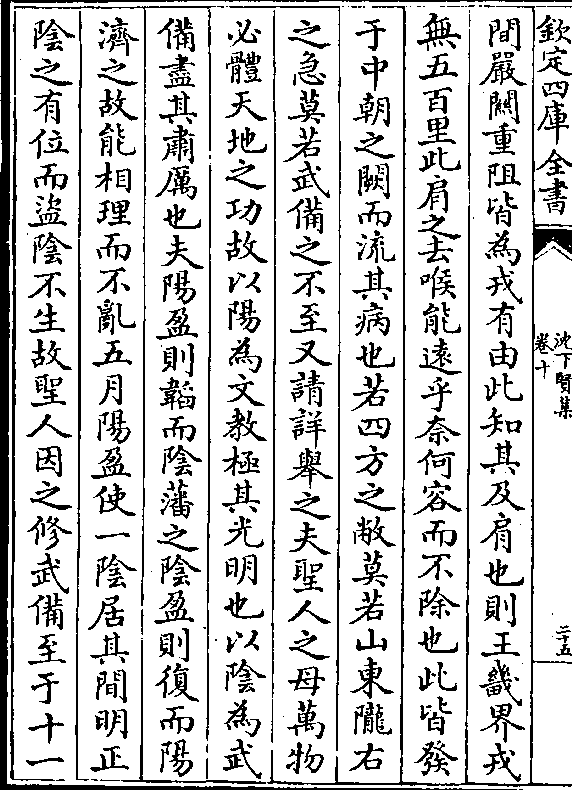 欽定四庫全書
沈下賢集
卷十
二十五
間嚴闗重阻皆為戎有由此知其及肩也則王畿界戎
無五百里此肩之去喉能逺乎奈何容而不除也此皆發
于中朝之闕而流其病也若四方之敝莫若山東隴右
之急莫若武備之不至又請詳舉之夫聖人之母萬物
必體天地之功故以陽為文教極其光明也以陰為武
備盡其肅厲也夫陽盈則韜而陰藩之陰盈則復而陽
濟之故能相理而不亂五月陽盈使一陰居其間明正
陰之有位而盜陰不生故聖人因之修武備至于十一